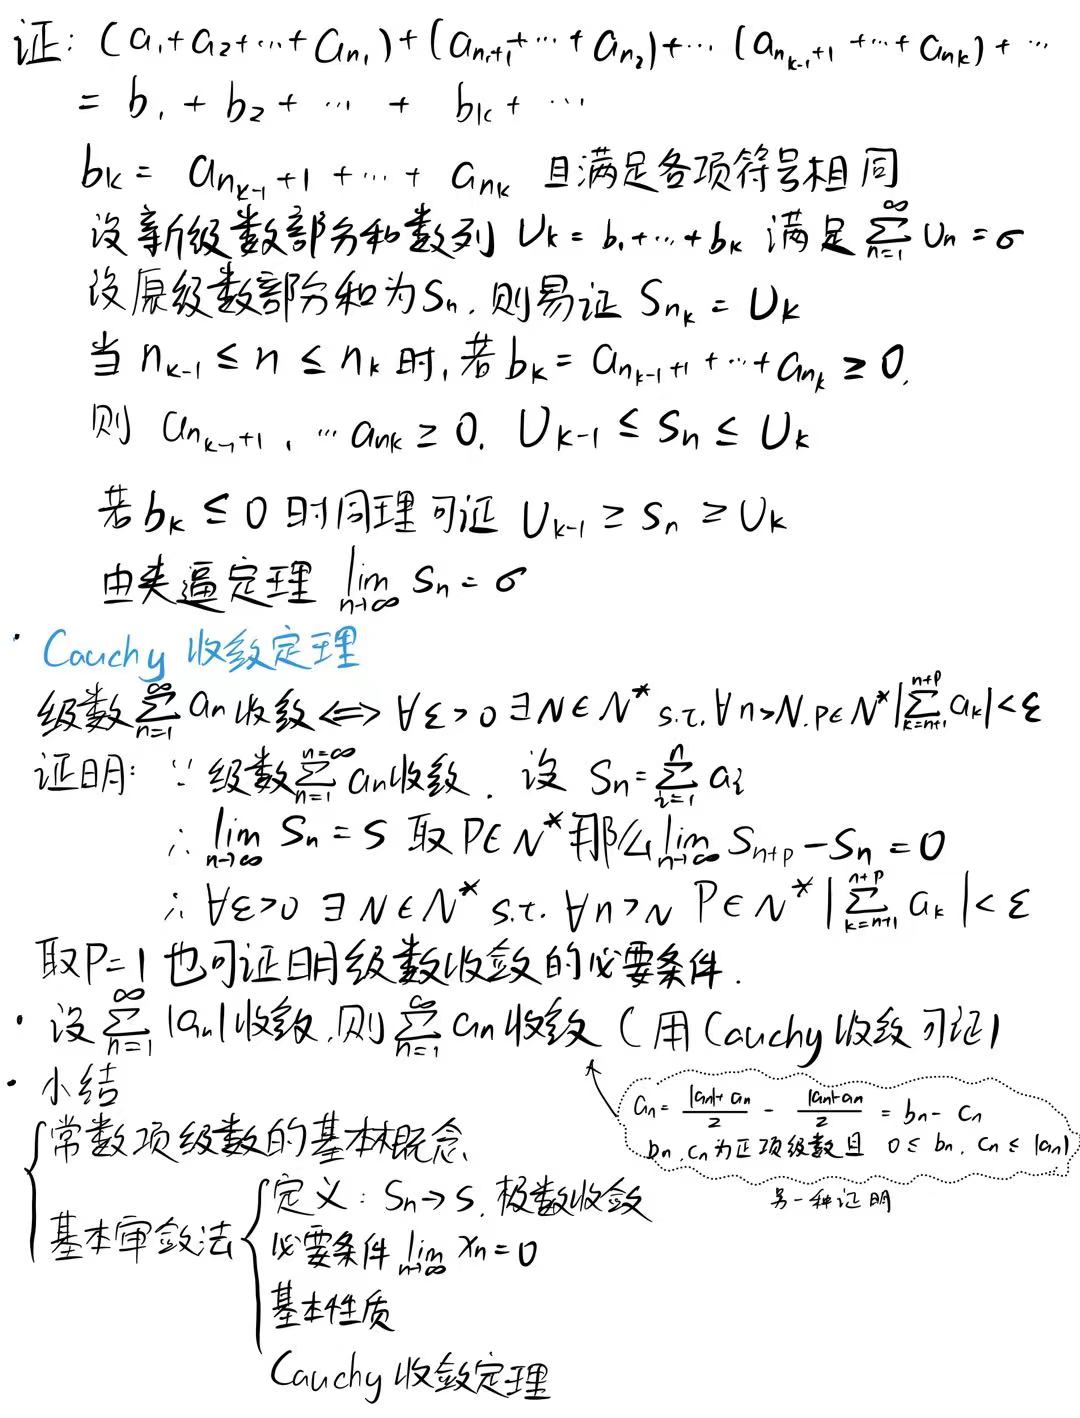 证: (a₁+a₂+…+a_{n₁})+(a_{n₁+1}+…+a_{n₂})+…(a_{n_{k-1}+1}+…+a_{n_k})+…
= b₁+b₂+…+b_k+…
b_k= a_{n_{k-1}}+1+…+ a_{n_k} 且满足各项符号相同
设新级数部分和数列 U_k=b₁+…+b_k 满足 ∑_{n=1}^{∞} U_n=σ
设原级数部分和为S_n,则易证 S_{n_k}=U_k
当 n_{k-1}≤n≤n_k时,若b_k=a_{n_{k-1}+1}+…+a_{n_k}≥0,
则 a_{n_{k-1}+1},…a_{n_k}≥0, U_{k-1}≤S_n≤U_k
若b_k≤0时同理可证 U_{k-1}≥S_n≥U_k
由夹逼定理 lim_{n→∞} S_n=σ
· Cauchy 收敛定理
级数∑_{n=1}^{∞} a_n 收敛⟺∀ε>0 ∃N∈N* s.t.∀n>N.p∈N*|∑_{k=n+1}^{n+p} a_k|<ε
证明: ∵级数∑_{n=1}^{n=∞} a_n收敛. 设 S_n=∑_{i=1}^{n} a_i
∴ lim_{n→∞} S_n=S 取P∈N* 那么lim_{n→∞} S_{n+p}-S_n=0
∴ ∀ε>0 ∃N∈N* s.t. ∀n>N P∈N* |∑_{k=n+1}^{n+p} a_k|<ε
取P=1也可证明级数收敛的必要条件.
· 设∑_{n=1}^{∞}|a_n|收敛,则∑_{n=1}^{∞} a_n收敛(用Cauchy收敛可证)
a_n= (|a_n|+a_n)/2 - (|a_n|-a_n)/2 = b_n-c_n
b_n,c_n为正项级数且 0≤b_n,c_n≤|a_n|
另一种证明
· 小结
常数项级数的基本概念
基本审敛法
定义: S_n→S,极数收敛
必要条件 lim_{n→∞} x_n=0
基本性质
Cauchy 收敛定理